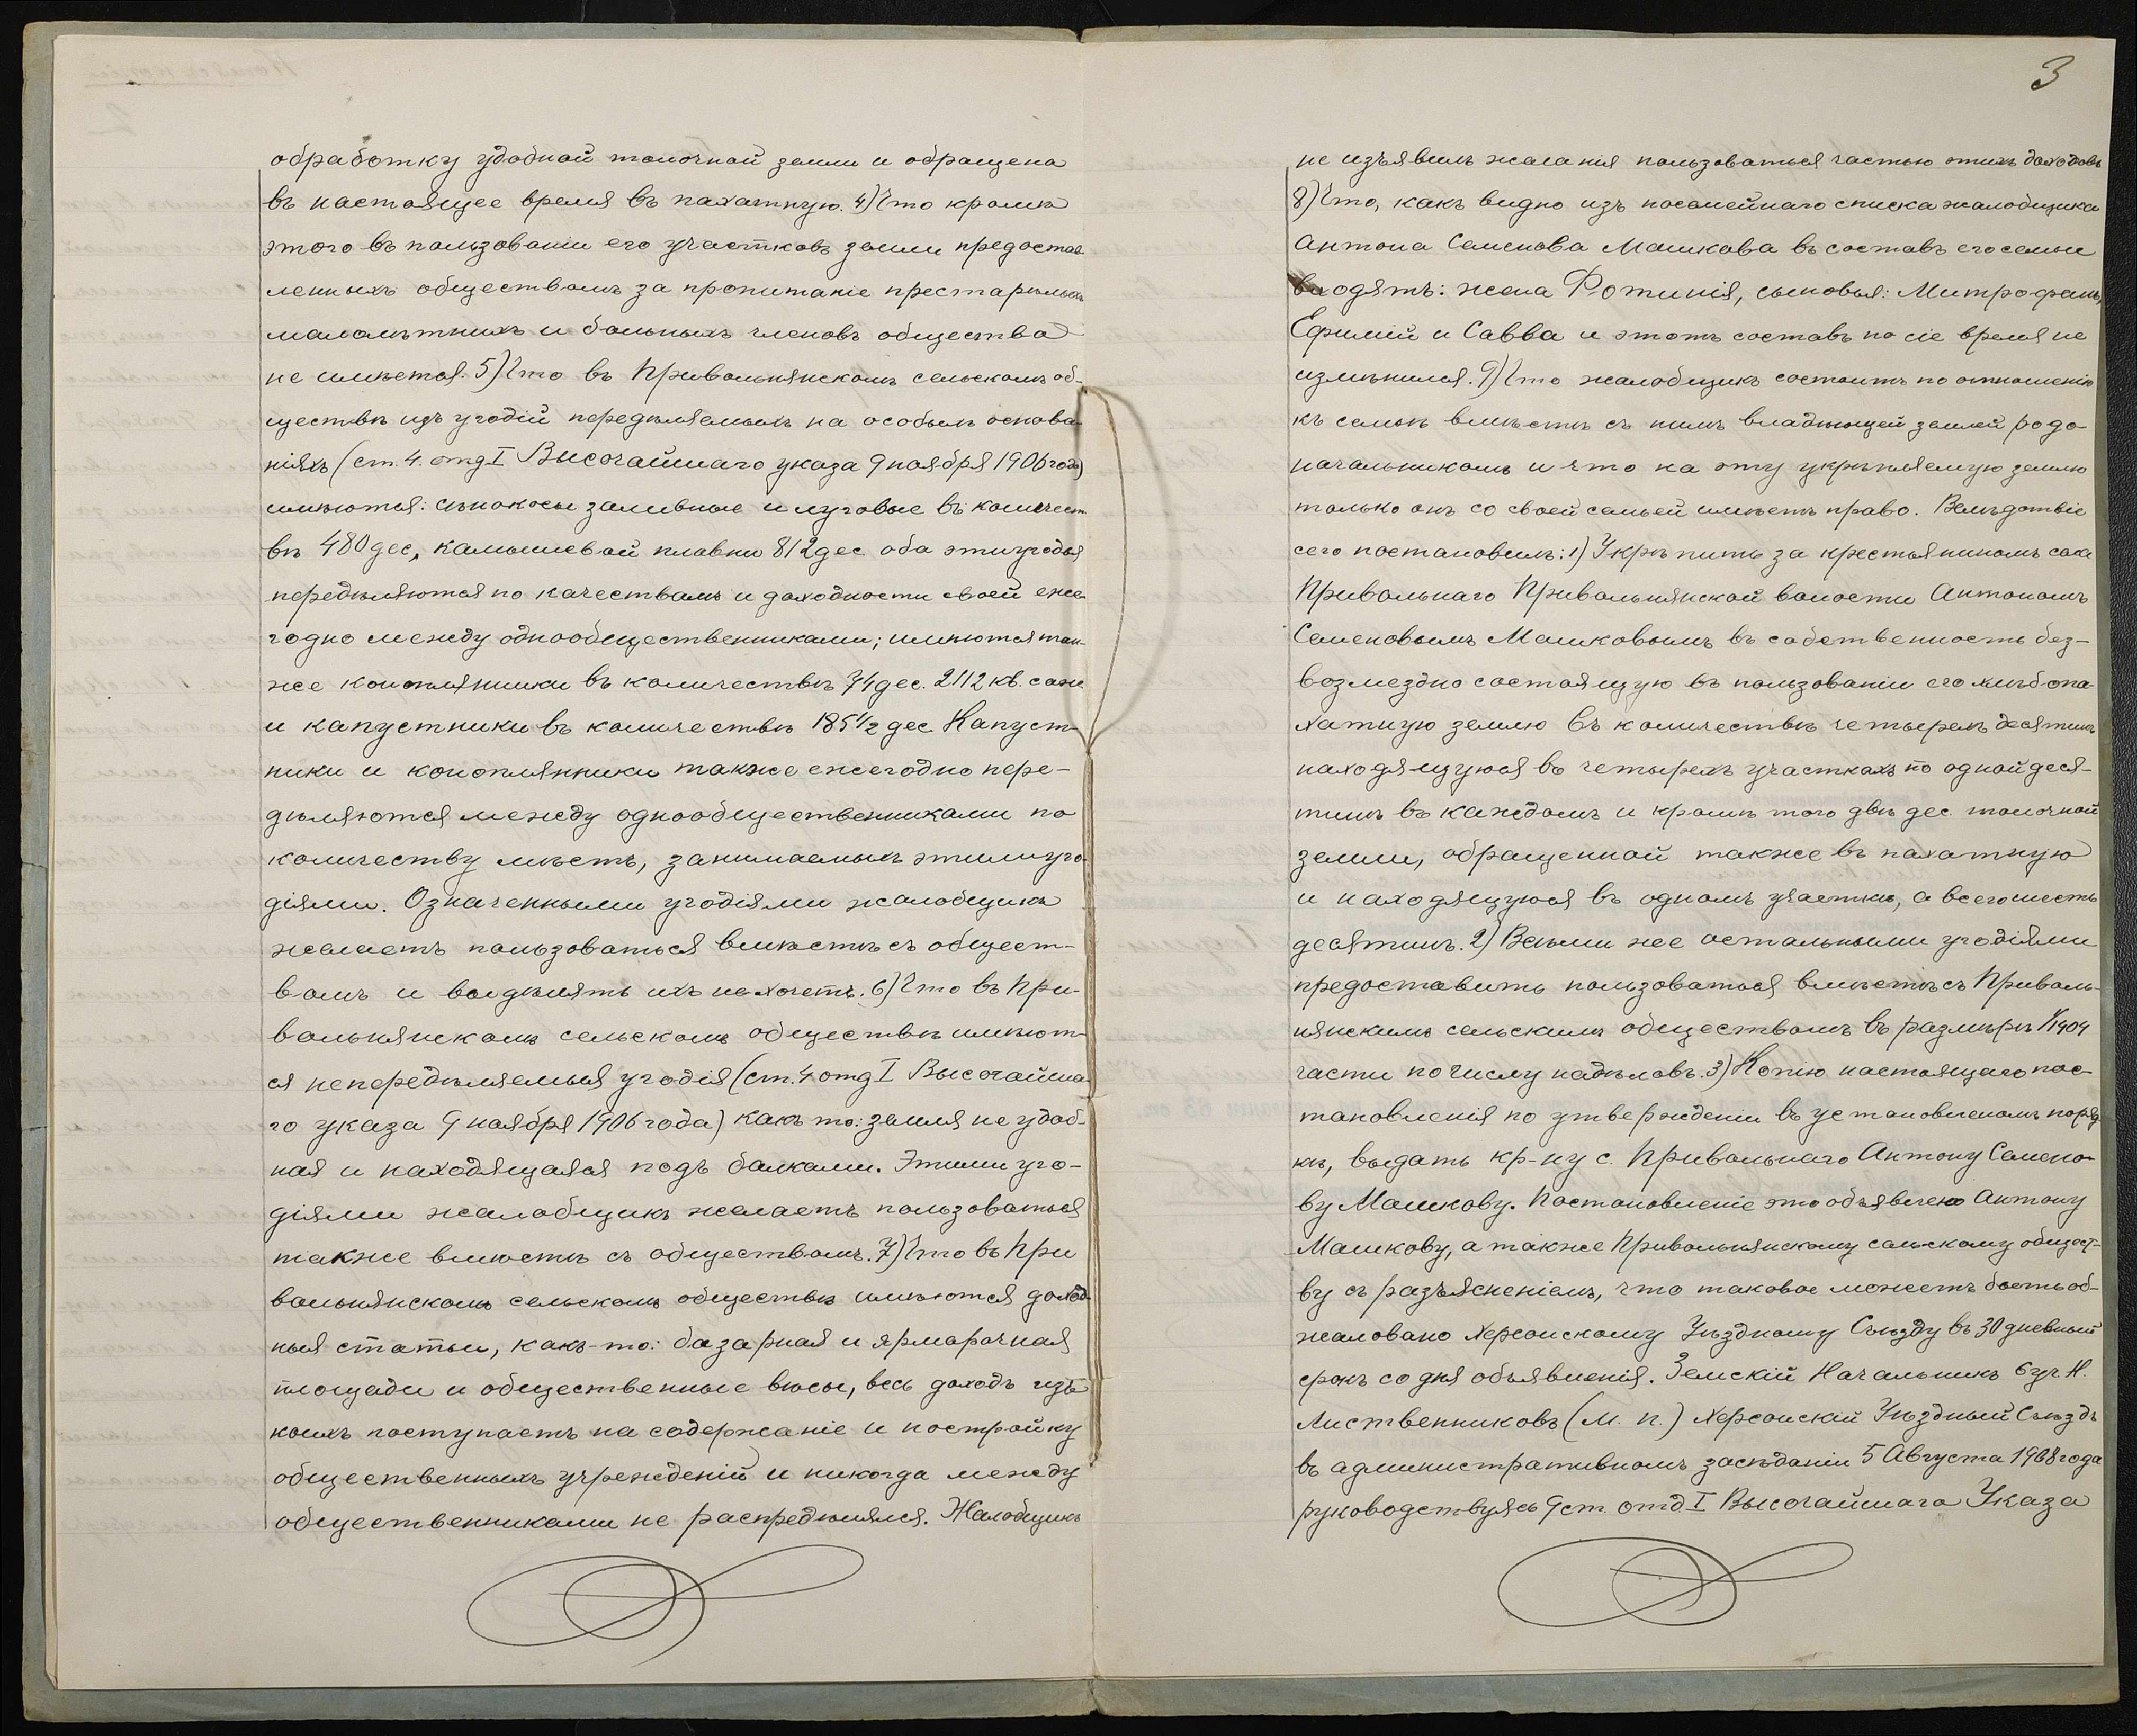 обработку удобной толочной земли и обращена
въ настоящее время въ пахатную. 4) Что кромѣ
этого въ пользованіи его участковъ земли предостав-
ленныхъ обществомъ за пропитаніе престарѣлыхъ
малолѣтнихъ и больныхъ членовъ общества
не имѣется. 5) Что въ Привольнянскомъ сельскомъ об-
ществѣ изъ угодій передѣляемыхъ на особыхъ основа-
ніяхъ (ст. 4. отд I Высочайшаго указа 9 ноября 1906 года)
имѣются: сѣнокосы заливные и луговые въ количест-
вѣ 480 дес, камышевой плавни 812 дес оба эти угодья
передѣляются по качествамъ и доходности своей еже-
годно между однообщественниками; имѣются так-
же коноплянники въ количествѣ 74 дес. 2112 кв. саж
и капустники въ количествѣ 185 1/2 дес. Капуст-
ники и коноплянники также ежегодно пере-
дѣляются между однообщественниками по
количеству мѣстъ, занимаемыхъ этими уго-
діями. Означенными угодіями жалобщикъ
желаетъ пользоваться вмѣстѣ съ общест-
вомъ и выдѣлять ихъ не хочетъ. 6) Что въ При-
вольнянскомъ сельскомъ обществѣ имѣют-
ся непередѣляемыя угодія (ст. 4 отд I Высочайша-
го указа 9 ноября 1906 года) какъ то: земля не удоб-
ная и находящаяся подъ балками. Этими уго-
діями жалобщикъ желаетъ пользоваться
также вмѣстѣ съ обществомъ. 7) Что въ При
вольнянскомъ сельскомъ обществѣ имѣются доход-
ныя статьи, какъ-то: базарная и ярмарочная
площади и общественные вѣсы, весь доходъ изъ
коихъ поступаетъ на содержаніе и постройку
общественныхъ учрежденій и никогда между
общественниками не распредѣлялся. Жалобщикъ
3
не изъявилъ желанія пользоваться частью этихъ доходовъ
8) Что, какъ видно изъ посемейнаго списка жалобщика
Антона Семенова Машкова въ составъ его семьи
входятъ: жена Фотинія, сыновья: Митрофанъ,
Ефимій и Савва и этотъ составъ по сіе время не
измѣнился. 9) Что жалобщикъ состоитъ по отношенію
къ семьѣ вмѣстѣ съ нимъ владѣющей землей родо-
начальникомъ и что на эту укрѣпляемую землю
только онъ со своей семьей имѣетъ право. Вслѣдствіе
сего постановилъ: 1) Укрѣпить за крестьяниномъ села
Привольнаго Привольнянской волости Антономъ
Семеновымъ Машковымъ въ собственность без-
возмездно состоящую въ пользованіи его хлѣбопа-
хатную землю въ количествѣ четырехъ десятинъ
находящуюся въ четырехъ участкахъ по одной деся-
тинѣ въ каждомъ и кромѣ того двѣ дес. толочной
земли, обращенной также въ пахатную
и находящуюся въ одномъ участкѣ, а всего шесть
десятинъ. 2) Всѣми же остальными угодіями
предоставить пользоваться вмѣстѣ съ Приволь-
нянскимъ сельскимъ обществомъ въ размѣрѣ 1/1904
части по числу надѣловъ. 3) Копію настоящаго пос-
тановленія по утвержденіи въ установленномъ поряд-
кѣ, выдать кр-ну с. Привольнаго Антону Семено-
ву Машкову. Постановленіе это объявлено Антону
Машкову, а также Привольнянскому сельскому общест-
ву съ разъясненіемъ, что таковое можетъ быть об-
жаловано Херсонскому Уѣздному Съѣзду въ 30 дневный
срокъ со дня объявленія. Земскій Начальникъ 6 уч. Н.
Лиственниковъ (М. п.) Херсонскій Уѣздный Съѣздъ
въ административномъ засѣданіи 5 Августа 1908 года
руководствуясь 9 ст. отд. I Высочайшаго Указа